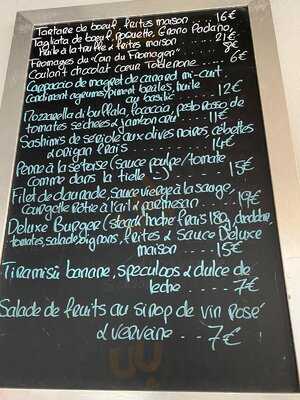 Tartare de boeuf, frites maison .... 16€
Tagliata de boeuf, roquette, Grana Padano,
Huile à la truffe & frites maison ..... 21€
Fromages du "Coin du Fromager" .... 8€
Coulant chocolat coeur Toblerone .... 6€
Carpaccio de magret de canard mi-cuit
Condiment agrumes, piment basilic, huile
au basilic ... 12€
Mozzarella di buffala, focaccia, pesto rosso, de
tomates séchées & jambon cru ... 11€
Sashimis de seriole aux olives noires, cébettes
& origan frais .... 14€
Penne à la sétoise (sauce poulpe/tomate
comme dans la tielle ...) ....... 15€
Filet de daurade, sauce vierge à la sauge,
courgette rôtie à l'ail & parmesan .. 19€
Deluxe Burger (steack haché frais 180g, cheddar,
tomates, salade, oignons, frites & sauce Deluxe
maison ... 15€
Tiramisù banane, speculoos & dulce de
leche ... 7€
Salade de fruits au sirop de vin rosé
& verveine .... 7€